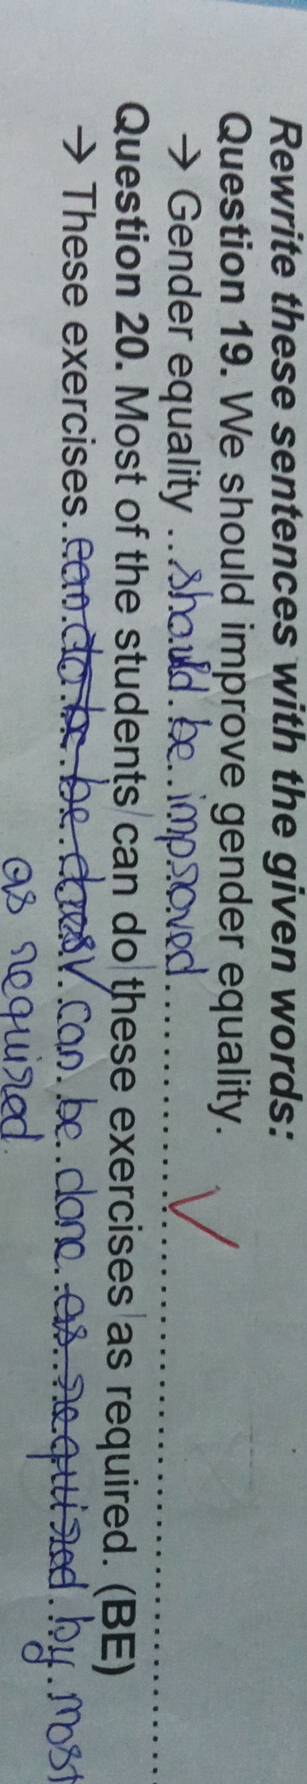 Rewrite these sentences with the given words:
Question 19. We should improve gender equality.
→ Gender equality ...should be improved
Question 20. Most of the students can do these exercises as required. (BE)
→ These exercises can do be be does can be done as required by most
as required.